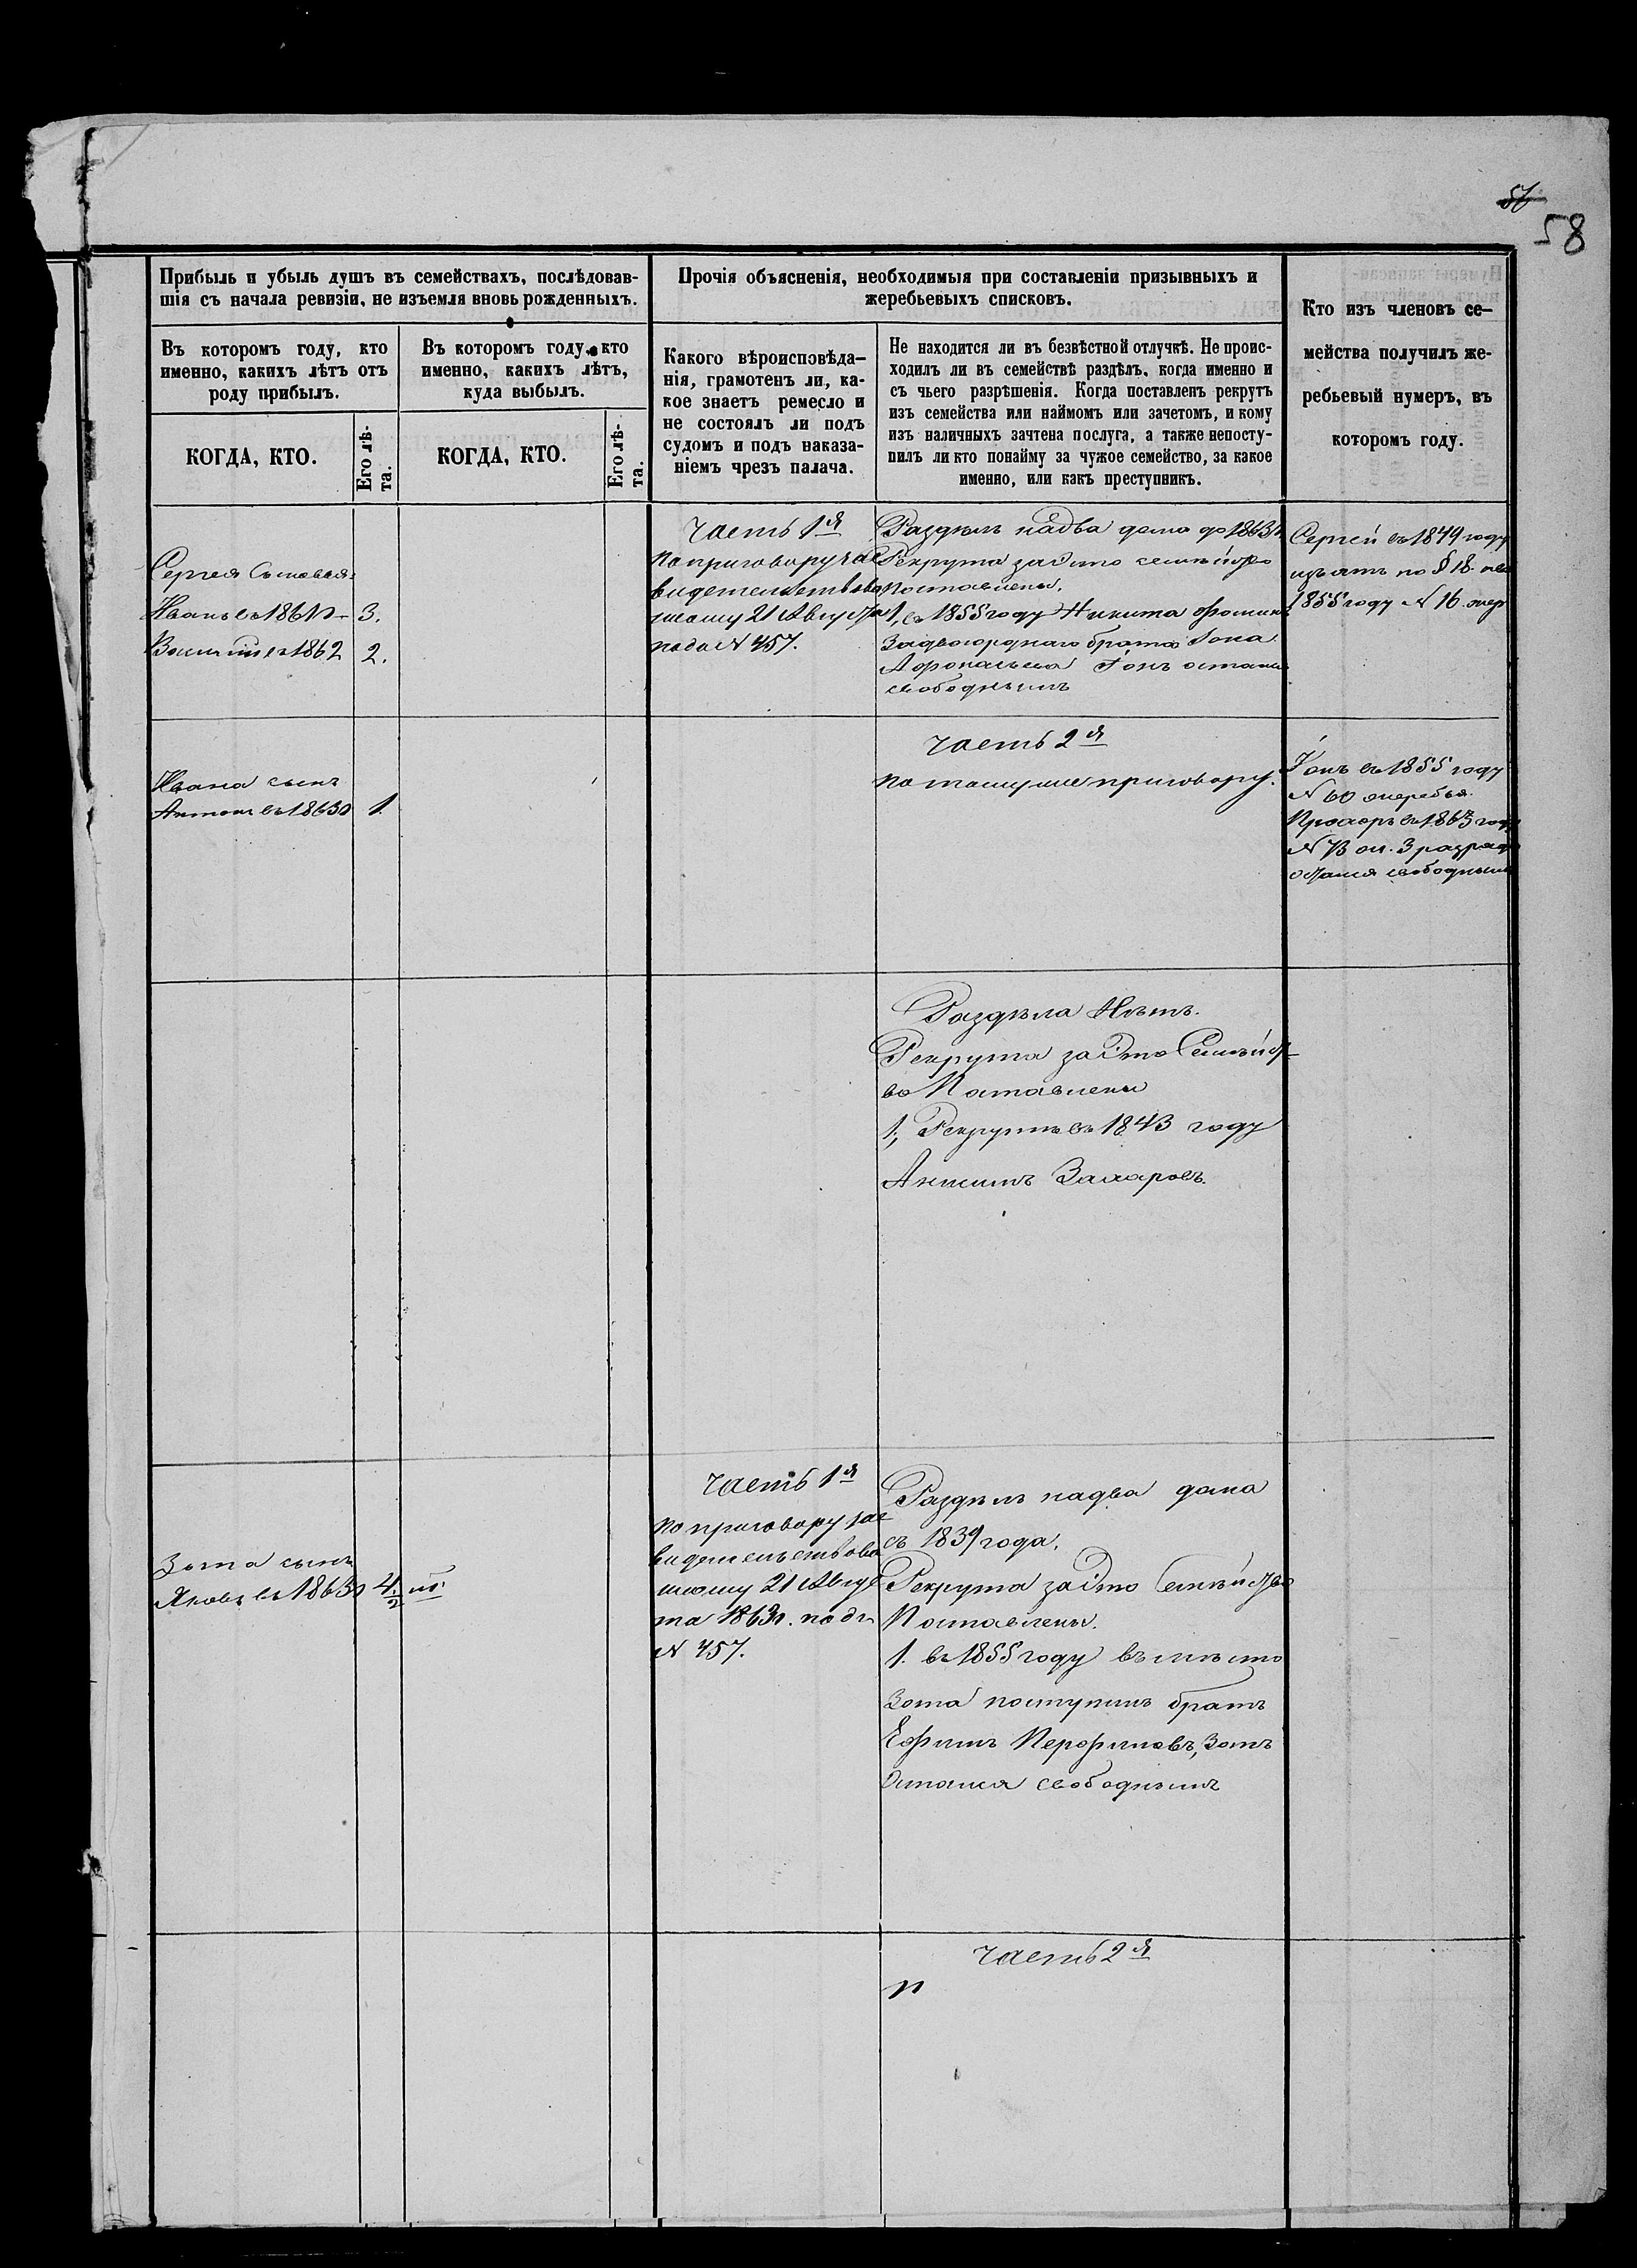 57
58
Прибыль и убыль душъ въ семействахъ, послѣдовав-
шія съ начала ревизіи, не изъемля вновь рожденныхъ.
Прочія объясненія, необходимыя при составленіи призывныхъ и
жеребьевыхъ списковъ.
Кто изъ членовъ се-
мейства получилъ же-
ребьевый нумеръ, въ
которомъ году.
Въ которомъ году, кто
именно, какихъ лѣтъ отъ
роду прибылъ.
Въ которомъ году, кто
именно, какихъ лѣтъ,
куда выбылъ.
Какого вѣроисповѣда-
нія, грамотенъ ли, ка-
кое знаетъ ремесло и
не состоялъ ли подъ
судомъ и подъ наказа-
ніемъ чрезъ палача.
Не находится ли въ безвѣстной отлучкѣ. Не проис-
ходилъ ли въ семействѣ раздѣлъ, когда именно и
съ чьего разрѣшенія. Когда поставленъ рекрутъ
изъ семейства или наймомъ или зачетомъ, и кому
изъ наличныхъ зачтена послуга, а также непосту-
пилъ ли кто понайму за чужое семейство, за какое
именно, или какъ преступникъ.
КОГДА, КТО.
Его лѣ-
та.
КОГДА, КТО.
Его лѣ-
та.
Сергея Сыновья:
Иванъ въ 1861 г. 3.
Василій въ 1862 2.
Часть 1я
по приговору зас
видетельствова
ному 21 Августа
подо N 457.
Раздѣлъ на два дома до 1863 г.
Рекрута за это семейство
поставлены.
1, въ 1855 году Никита
За двоюроднаго брата Іона
Іонъ остался
свободнымъ
Сергей въ 1849 году
изъятъ по § 18.
1855 году N 16.
Ивана сынъ
Антонъ въ 1863 г. 1.
Часть 2я
по тому же приговору.
Іонъ въ 1855 году
N 60 жеребья.
Прохоръ въ 1863 году
N 73 3 разряда
остался свободнымъ
Раздѣла Нѣтъ.
Рекрута за Это Семейст-
во Поставлены
1, Рекрутъ въ 1843 году
Анисимъ Захаровъ.
Зота сынъ
Яковъ въ 1863 г. 4/2 м.
Часть 1я
по приговору зас
видетельствова
ному 21 Авгус
та 1863 г. подъ
N 457.
Раздѣлъ на два дома
съ 1839 года.
Рекрута за Это Семейство
Поставлены.
1. въ 1855 году вмѣсто
Зота поступилъ братъ
Ефимъ Перфиловъ, Зотъ
Остался свободнымъ
Часть 2я
п